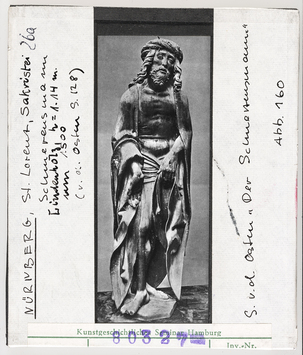 NÜRNBERG, St. Lorenz, Sakristei
Schmerzensmann
Lindenholz, h = 1.14 m.
um 1500
(v. d. Osten S. 128)
26a
S. v. d. Osten "Der Schmerzensmann"
Abb. 160
Kunstgeschichtliches Seminar Hamburg
80327
Inv.-Nr.